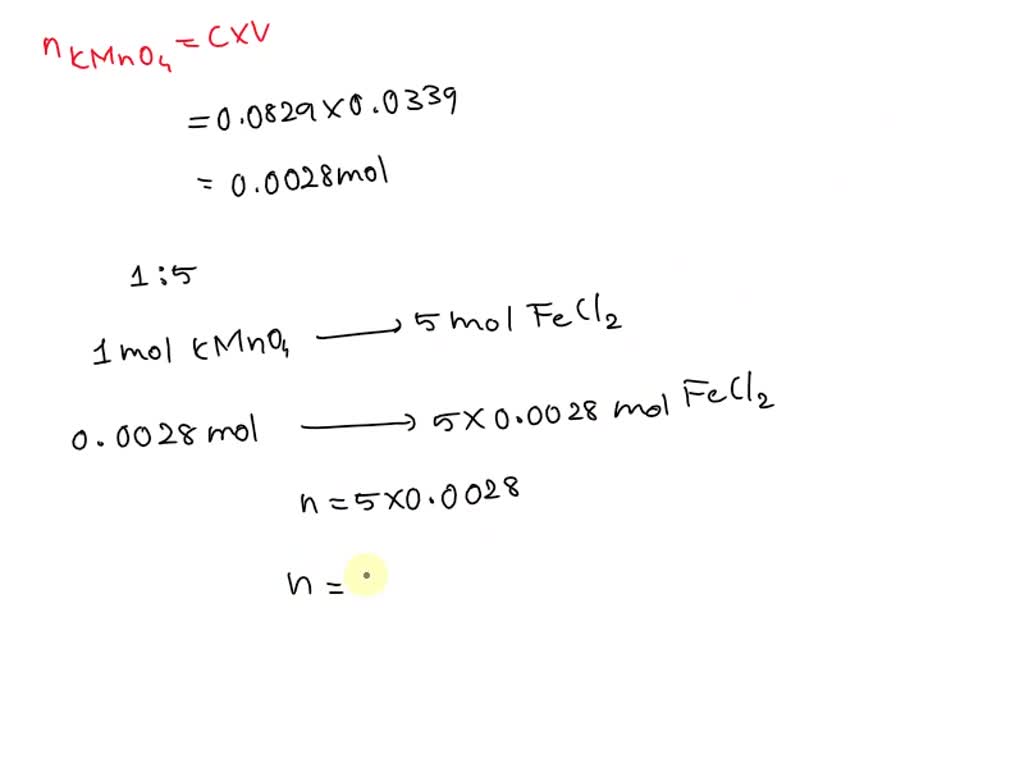 nKMnO4 = CXV
= 0.0829 X 0.0339
= 0.0028 mol
1:5
1 mol KMnO4 ⟶ 5 mol FeCl2
0.0028 mol ⟶ 5 X 0.0028 mol FeCl2
n = 5 X 0.0028
n =